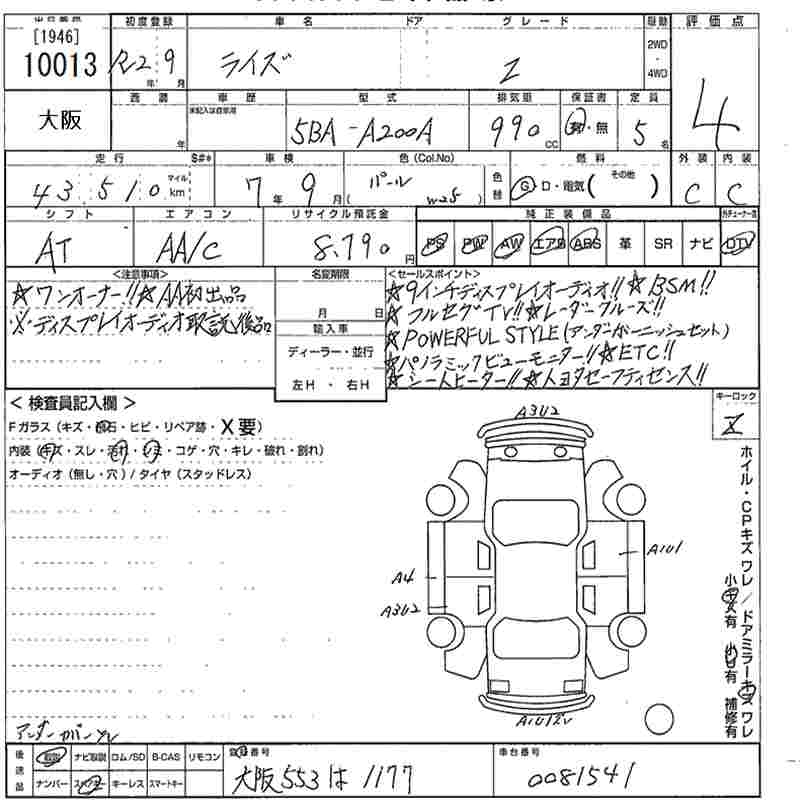 [1946]
10013
大阪
初度登録
R2年 9月
車名
ライズ
ドア
グレード
Z
駆動
2WD
4WD
評価点
4
西暦
年
車歴
未記入は自家用
型式
5BA-A200A
排気量
990cc
保証書
有・無
定員
5名
走行
S#*
43,510
マイル
km
車検
7年 9月
色(Col.No)
パール
( W25 )
色替
燃料
G・D・電気( その他 )
外装
C
内装
C
シフト
AT
エアコン
AA/C
リサイクル預託金
8,790円
純正装備品
PS PW AW エアB ABS 革 SR ナビ DTV
<注意事項>
☆ワンオーナー!!☆AA初出品
※ディスプレイオーディオ取説後品
名変期限
月 日
輸入車
ディーラー・並行
左H ・ 右H
<セールスポイント>
☆9インチディスプレイオーディオ!!☆BSM!!
☆フルセグTV!!☆レーダークルーズ!!
☆POWERFUL STYLE(アンダーガーニッシュセット)
☆パノラミックビューモニター!!☆ETC!!
☆シートヒーター!!☆トヨタセーフティセンス!!
<検査員記入欄>
Fガラス(キズ・飛石・ヒビ・リペア跡・X要)
内装(キズ・スレ・汚れ・シミ・コゲ・穴・キレ・破れ・割れ)
オーディオ(無し・穴)/タイヤ(スタッドレス)
キーロック
Z
A3U2
A1U1
A4
A3U2
A1U12V
ホイル・CPキズ ワレ/ドアミラーキズ ワレ
小キズ有 小凹有 補修有
後送品
取説 ナビ取説 ロム/SD B-CAS リモコン
ナンバー スペアキー キーレス スマートキー
登録番号
大阪 553 は 1177
車台番号
0081541